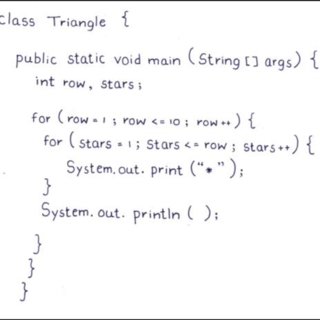 class Triangle {
public static void main (String [] args) {
int row, stars;
for (row = 1 ; row <= 10 ; row ++) {
for ( stars = 1 ; Stars <= row ; stars ++) {
System. out. print ("*");
}
System. out. println ( );
}
}
}